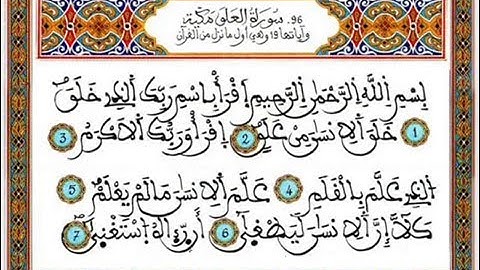 96. سورة العلق مكية
وآياتها 19 وهي أول ما نزل من القرآن
بِسْمِ اللَّهِ الرَّحْمَٰنِ الرَّحِيمِ اِقْرَأْ بِاسْمِ رَبِّكَ الَّذِي خَلَقَ
1 خَلَقَ الْاِنسَٰنَ مِنْ عَلَقٍ 2 اِقْرَأْ وَرَبُّكَ الْاَكْرَمُ 3
الَّذِي عَلَّمَ بِالْقَلَمِ 4 عَلَّمَ الْاِنسَٰنَ مَا لَمْ يَعْلَمْ 5
كَلَّا إِنَّ الْاِنسَٰنَ لَيَطْغَىٰ 6 أَن رَّءَاهُ اسْتَغْنَىٰ 7